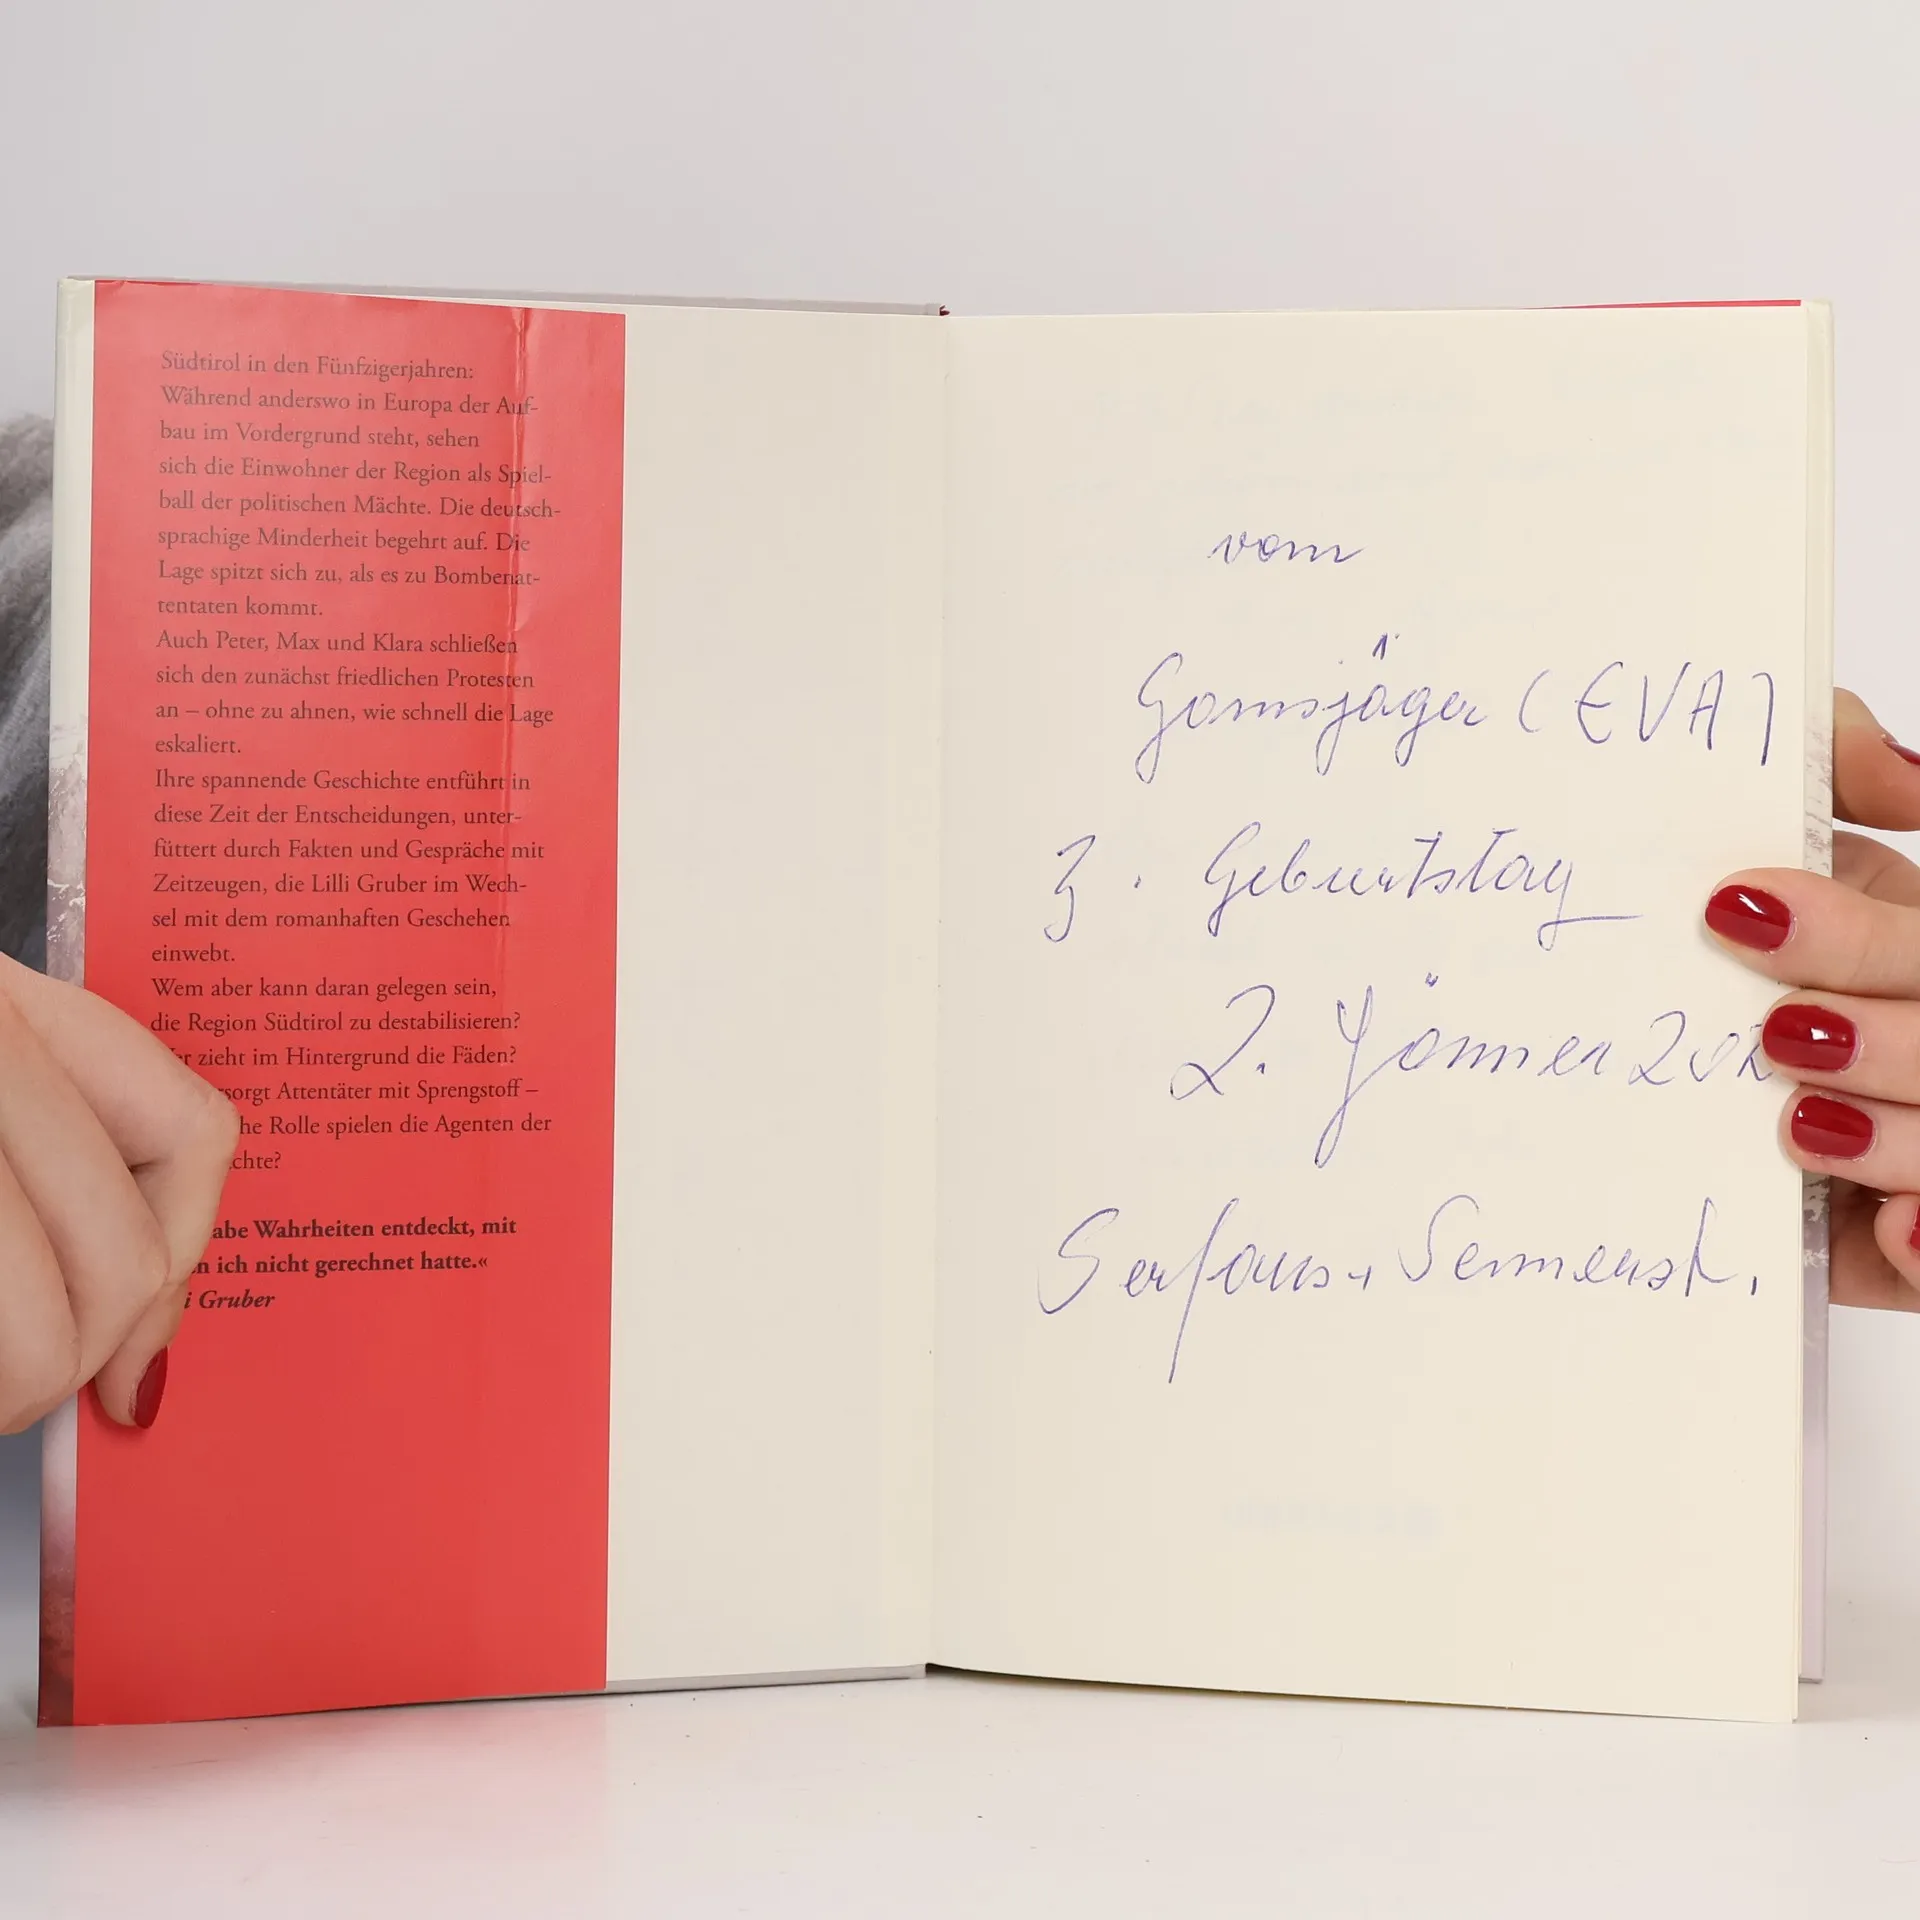 Südtirol in den Fünfzigerjahren:
Während anderswo in Europa der Auf-
bau im Vordergrund steht, sehen
sich die Einwohner der Region als Spiel-
ball der politischen Mächte. Die deutsch-
sprachige Minderheit begehrt auf. Die
Lage spitzt sich zu, als es zu Bombenat-
tentaten kommt.
Auch Peter, Max und Klara schließen
sich den zunächst friedlichen Protesten
an – ohne zu ahnen, wie schnell die Lage
eskaliert.
Ihre spannende Geschichte entführt in
diese Zeit der Entscheidungen, unter-
füttert durch Fakten und Gespräche mit
Zeitzeugen, die Lilli Gruber im Wech-
sel mit dem romanhaften Geschehen
einwebt.
Wem aber kann daran gelegen sein,
die Region Südtirol zu destabilisieren?
er zieht im Hintergrund die Fäden?
sorgt Attentäter mit Sprengstoff –
he Rolle spielen die Agenten der
chte?
abe Wahrheiten entdeckt, mit
n ich nicht gerechnet hatte.«
i Gruber
vom
Gamsjäger (EVA)
3. Geburtstag
2. Jänner 202
Serfaus +